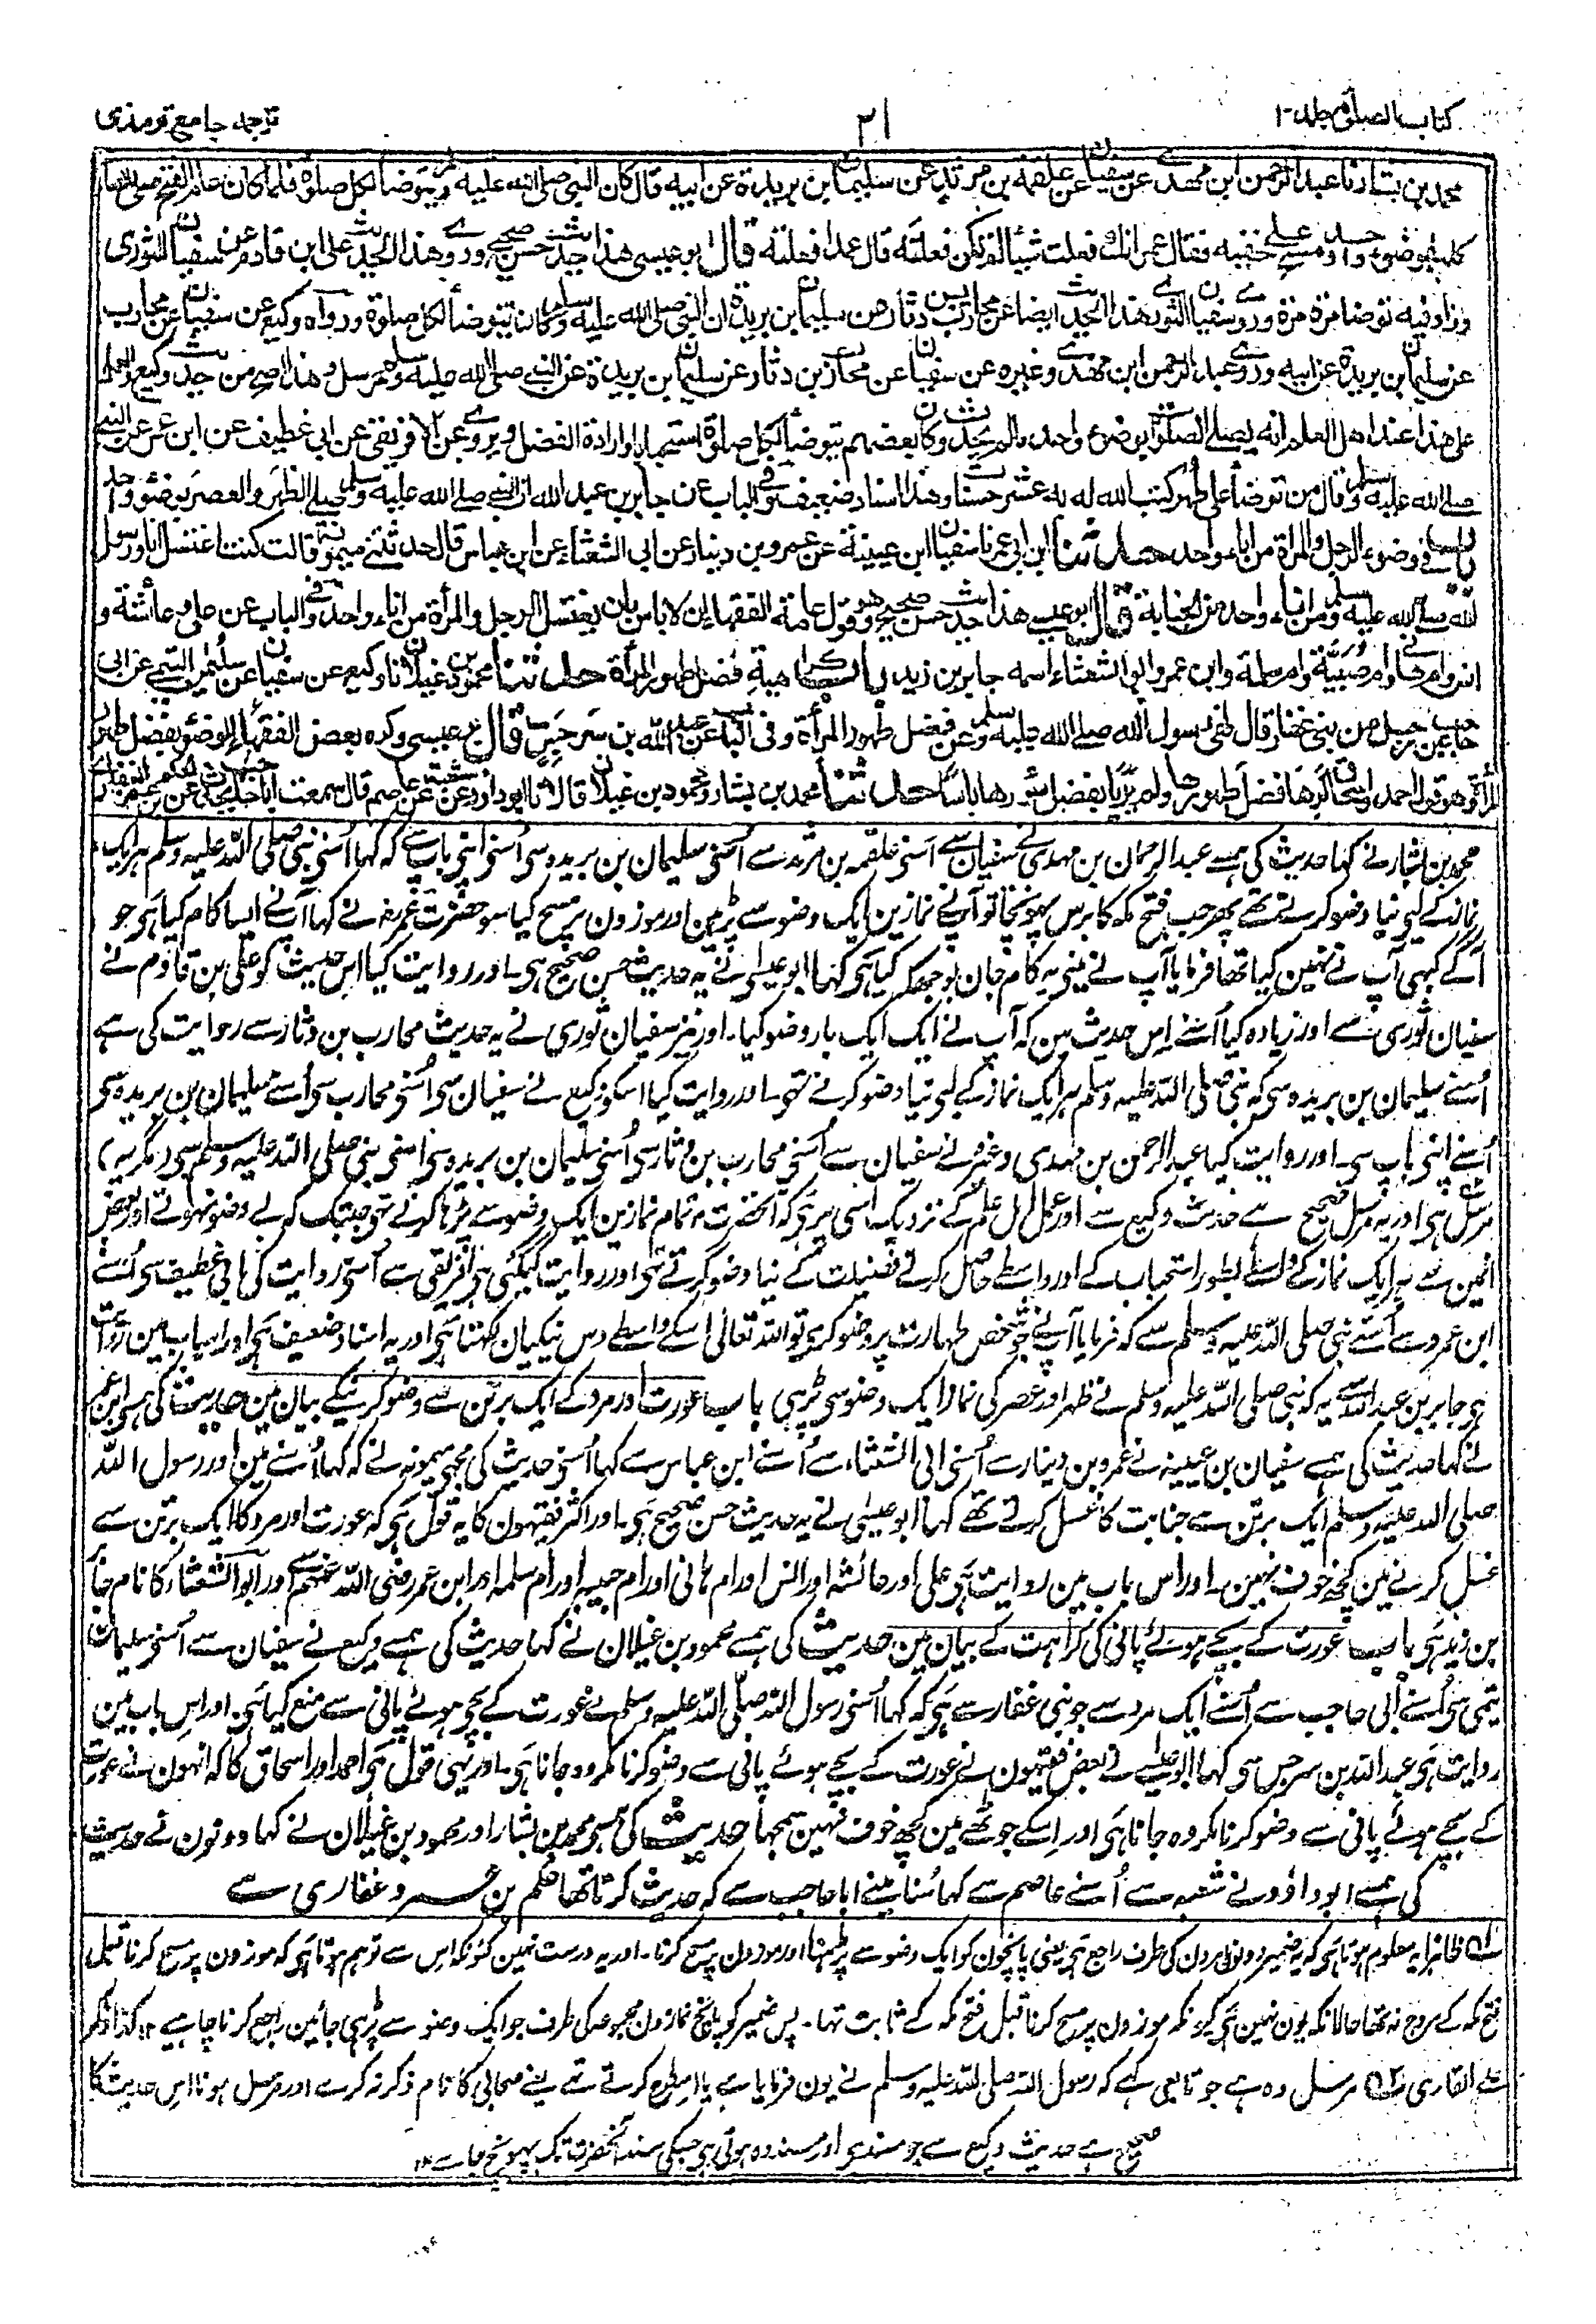 کتاب الصلوٰۃ جلد ۱
۳۱
ترجمہ جامع ترمذی
محمد بن بشار نا عبد الرحمن ابن مهدی عن سفیان عن علقمة بن مرثد عن سلیمان ابن بریدة عن ابیه قال کان النبی صلی الله علیه وسلم یتوضأ لکل صلوة فلما کان عام الفتح صلی الصلوات
کلها بوضوء واحد ومسح علی خفیه فقال عمر انك فعلت شیئا لم تکن فعلته قال عمدا فعلته قال ابو عیسی هذا حدیث حسن صحیح وروی هذا الحدیث علی ابن قادم عن سفیان الثوری
وزاد فیه توضا مرة مرة وروی سفیان الثوری هذا الحدیث ایضا عن محارب بن دثار عن سلیمان بن بریدة ان النبی صلی الله علیه وسلم کان یتوضأ لکل صلوة ورواه وکیع عن سفیان عن محارب
عن سلیمان بن بریدة عن ابیه وروی عبد الرحمن ابن مهدی وغیره عن سفیان عن محارب بن دثار عن سلیمان بن بریدة عن النبی صلی الله علیه وسلم مرسل وهذا اصح من حدیث وکیع والعمل
علی هذا عند اهل العلم انه یصلی الصلوات بوضوء واحد مالم یحدث وکان بعضهم یتوضأ لکل صلوة استحبابا وارادة الفضل ویروی عن الافریقی عن ابی غطیف عن ابن عمر عن النبی
صلی الله علیه وسلم قال من توضأ علی طهر کتب الله له به عشر حسنات وهذا اسناد ضعیف وفی الباب عن جابر بن عبد الله ان النبی صلی الله علیه وسلم صلی الظهر والعصر بوضوء واحد
باب فی وضوء الرجل والمرأة من اناء واحد حدثنا ابن ابی عمر نا سفیان ابن عیینة عن عمرو بن دینار عن ابی الشعثاء عن ابن عباس قال حدثتنی میمونة قالت کنت اغتسل انا ورسول
الله صلی الله علیه وسلم من اناء واحد من الجنابة قال ابو عیسی هذا حدیث حسن صحیح وهو قول عامة الفقهاء ان لا باس بان یغتسل الرجل والمرأة من اناء واحد وفی الباب عن علی وعائشة و
انس وام هانی وام صبیة وام سلمة وابن عمر وابو الشعثاء اسمه جابر بن زید باب کراهیة فضل طهور المرأة حدثنا محمود بن غیلان نا وکیع عن سفیان عن سلیمن التیمی عن ابی
حاجب عن رجل من بنی غفار قال نهی رسول الله صلی الله علیه وسلم عن فضل طهور المرأة وفی الباب عن عبد الله بن سرجس قال ابو عیسی وکره بعض الفقهاء الوضوء بفضل طهور
المرأة وهو قول احمد واسحاق کرها فضل طهورها ولم یریا بفضل سؤرها باسا حدثنا محمد بن بشار ومحمود بن غیلان قالا نا ابو داود عن شعبة عن عاصم قال سمعت ابا حاجب یحدث عن الحکم بن عمرو الغفاری
محمد بن بشار نے کہا حدیث کی ہمسے عبد الرحمان بن مہدی نے سفیان سے اُسنی علقمہ بن مرثد سے اُسنی سلیمان بن بریدہ سی اُسنی اپنی باپ سے کہ کہا اُسنی نبی صلی اللہ علیہ وسلم ہر ایک
نماز کے لیی نیا وضو کرتے تھے پھر جب فتح مکہ کا برس پہونچا تو آپ نے نمازین ایک وضو سے پڑہین اور موزون پر مسح کیا سو حضرت عمر رض نے کہا آپنے ایسا کام کیا ہی جو
آگے کبھی آپ نے نہین کیا تھا فرمایا آپ نے مینی یہ کام جان بوجھکر کیا ہی کہا ابو عیسٰی نے یہ حدیث حسن صحیح ہی۔ اور روایت کیا اس حدیث کو علی بن قادم نے
سفیان ثوری سے اور زیادہ کیا اُسنے اِس حدیث مین کہ آپ نے ایک ایک بار وضو کیا۔ اور نیز سفیان ثوری نے یہ حدیث محارب بن دثار سے روایت کی ہے
اُسنے سلیمان بن بریدہ سی کہ نبی صلی اللہ علیہ وسلم ہر ایک نماز کے لیی نیا وضو کرتے تھی۔ اور روایت کیا اسکو وکیع نے سفیان سی اُسنی محارب سی اُسنے سلیمان بن بریدہ سی
اُسنے اپنی باپ سی۔ اور روایت کیا عبد الرحمن بن مہدی وغیرہ نے سفیان سے اُسنی محارب بن دثار سی اُسنی سلیمان بن بریدہ سی اُسنی نبی صلی اللہ علیہ وسلم سی (مگر یہ)
مرسل ہی اور یہ مرسل صحیح ہے حدیث وکیع سے اور عمل اہل علم کے نزدیک اسی پر ہی کہ آنحضرت م تمام نمازین ایک وضو سے پڑہا کرتے تھی جبتک کہ بے وضو نہوتے اور بعض
انمین سے ہر ایک نماز کے واسطے بطور استحباب کے اور واسطے حاصل کرنے فضیلت کے نیا وضو کرتے تھی اور روایت کیگئی ہی افریقی سے اُسنی روایت کی ابی غطیف سی اُسنے
ابن عمر سے اُسنے نبی صلی اللہ علیہ وسلم سے کہ فرمایا آپنے جو شخص طہارت پر وضو کری تو اللہ تعالی اسکے واسطے دس نیکیان لکھتا ہی اور یہ اسناد ضعیف ہی اور اسباب مین روایت
ہی جابر بن عبد اللہ سے یہ کہ نبی صلی اللہ علیہ وسلم نے ظہر اور عصر کی نماز ایک وضو سی پڑہی باب عورت اور مرد کے ایک برتن سے وضو کرنیکے بیان مین حدیث کی ہمسی ابن عمر
نے کہا حدیث کی ہمسے سفیان بن عیینہ نے عمرو بن دینار سے اُسنی ابی الشعثاء سے اُسنے ابن عباس سے کہا اُسنی حدیث کی مجھی میمونہ نے کہ کہا اُسنے مین اور رسول اللہ
صلی اللہ علیہ وسلم ایک برتن سے جنابت کا غسل کرتے تھے کہا ابو عیسٰی نے یہ حدیث حسن صحیح ہی۔ اور اکثر فقیہون کا یہ قول ہی کہ عورت اور مرد کا ایک برتن سے
غسل کرنے مین کچھ خوف نہین۔ اور اس باب مین روایت ہی علی اور عائشہ اور انس اور ام ہانی اور ام حبیبہ اور ام سلمہ اور ابن عمر رضی اللہ عنہم سے اور ابو الشعثاء کا نام جابر
بن زید ہی باب عورت کے بچے ہوئے پانی کی کراہت کے بیان مین حدیث کی ہمسے محمود بن غیلان نے کہا حدیث کی ہمسے وکیع نے سفیان سے اُسنی سلیمان
تیمی سی اُسنے ابی حاجب سے اُسنے ایک مرد سے جو بنی غفار سے ہی کہ کہا اُسنی رسول اللہ صلی اللہ علیہ وسلم نے عورت کے بچے ہوئے پانی سے منع کیا ہی۔ اور اس باب مین
روایت ہی عبد اللہ بن سرجس سی کہا ابو عیسٰی نے بعض فقیہون نے عورت کے بچے ہوئے پانی سے وضو کرنا مکروہ جانا ہی۔ اور یہی قول ہی احمد اور اسحاق کا کہ انہون نے عورت
کے بچے ہوئے پانی سے وضو کرنا مکروہ جانا ہی اور اسکے جوٹھے مین کچھ خوف نہین سمجھا حدیث کی ہمسی محمد بن بشار اور محمود بن غیلان نے کہا دونون نے حدیث
کی ہمسے ابو داؤد نے شعبہ سے اُسنے عاصم سے کہا سُنا مینے ابا حاجب سے کہ حدیث کرتا تھا حکم بن عمرو غفاری سے
ف۱ ظاہرا یہ معلوم ہوتا ہی کہ یہ ضمیر دونو امرون کی طرف راجع ہی یعنی پانچون کو ایک وضو سے پڑہنا اور موزون پر مسح کرنا۔ اور یہ درست نہین کیونکہ اس سے توہم ہوتا ہی کہ موزون پر مسح کرنا قبل
فتح مکہ کے مروج نہ تھا حالانکہ یون نہین ہی کیونکہ موزون پر مسح کرنا قبل فتح مکہ کے ثابت تہا۔ پس ضمیر کو پانچ نمازون مجموعہ کی طرف جو ایک وضو سے پڑہی جائین راجع کرنا چاہیے ۱۲ کذا ذکر
علی القاری ف۲ مرسل وہ ہے جو تابعی کہے کہ رسول اللہ صلی اللہ علیہ وسلم نے یون فرمایا ہے یا اسطرح کرتے تھے یعنے صحابی کا نام ذکر نہ کرے اور مرسل ہونا اس حدیث کا
صحیح ہے حدیث وکیع سے جو مسند ہی اور مسند وہ ہوتی ہی جسکی سند آنحضرت تک پہونچ جاے ۱۲